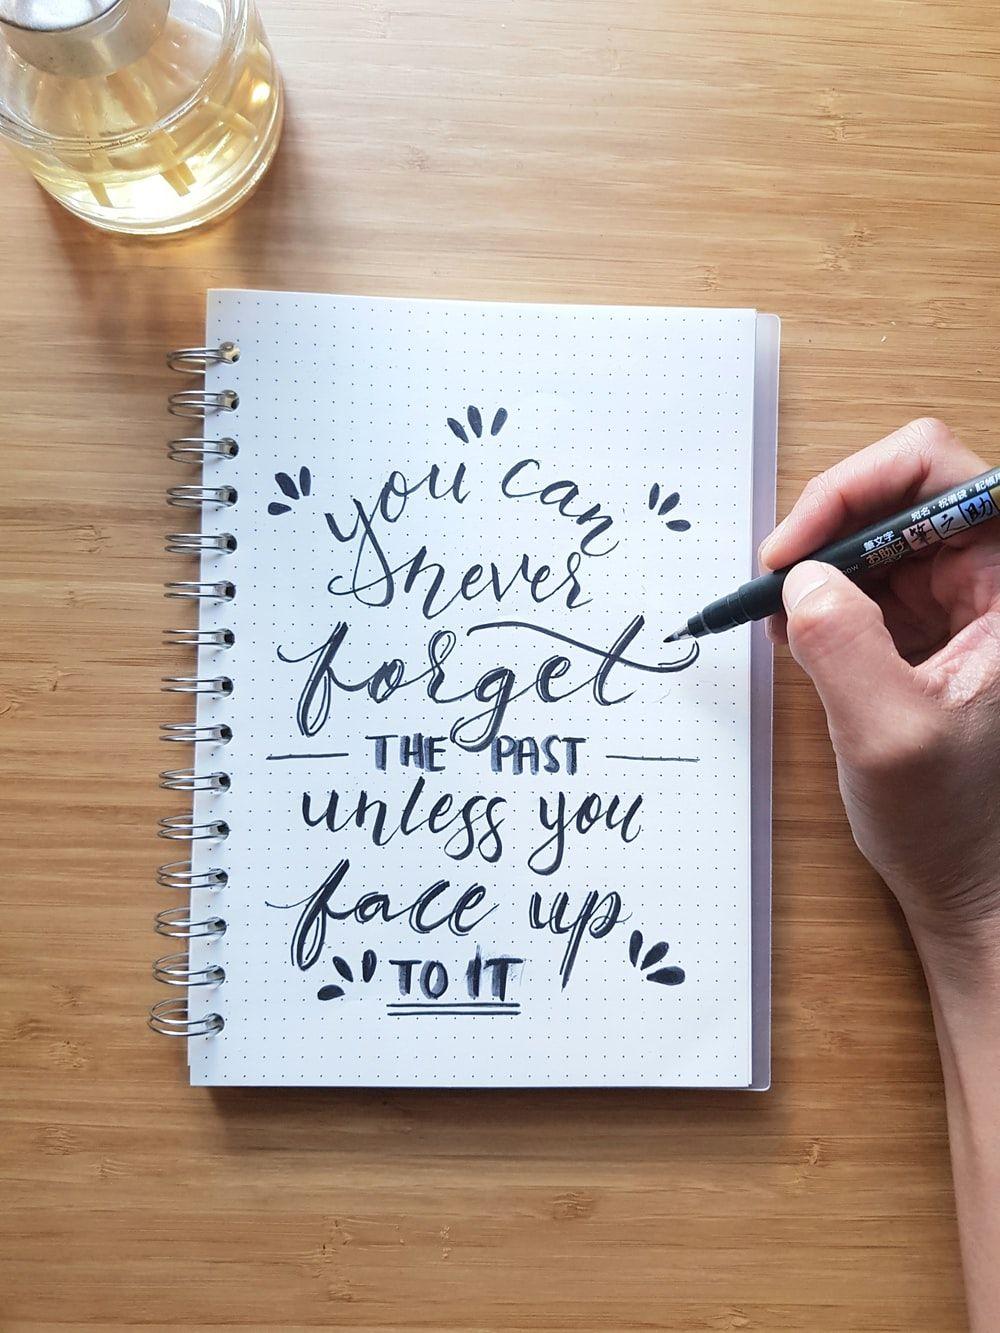 you can
never
forget
THE PAST
unless you
face up
TO IT
宛名・祝儀袋・記帳用
筆文字
お助け
筆之助